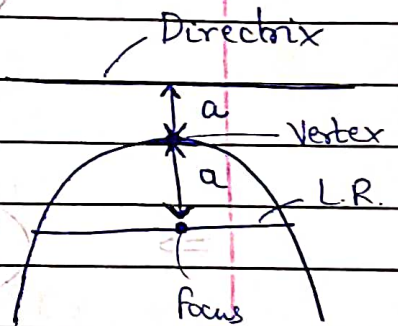 Directrix
a
Vertex
a
L.R.
focus